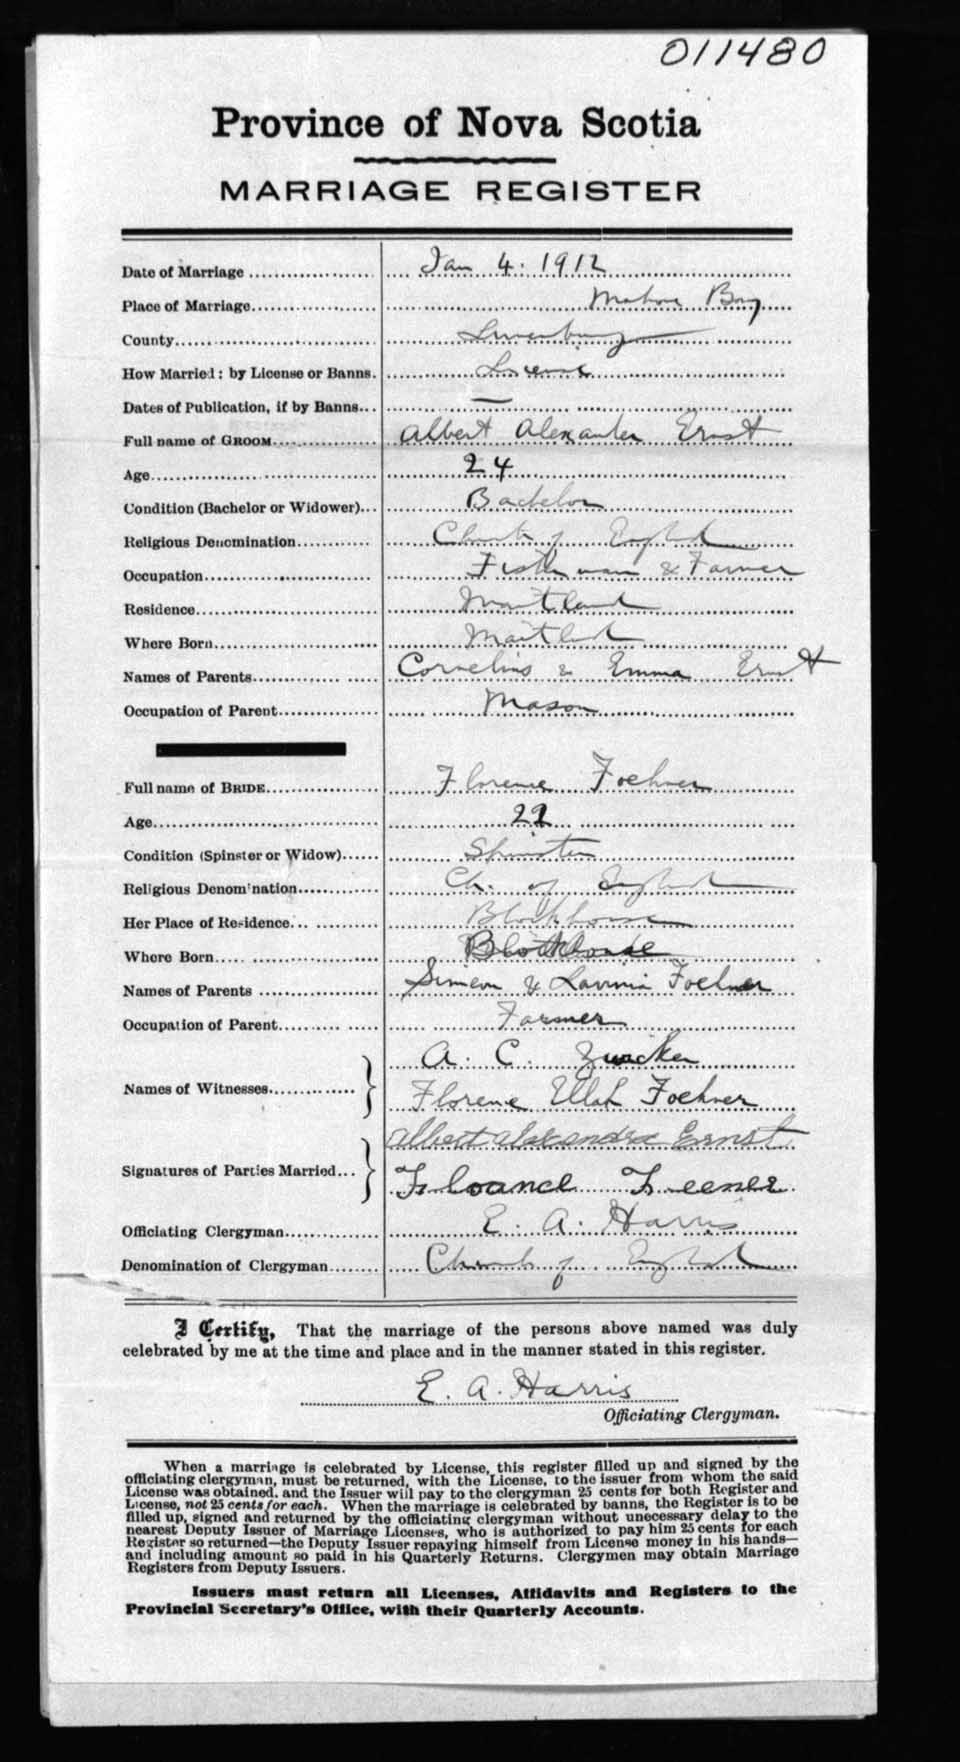 011480
Province of Nova Scotia
MARRIAGE REGISTER
Date of Marriage Jan 4. 1912
Place of Marriage Mahone Bay
County Lunenburg
How Married: by License or Banns. License
Dates of Publication, if by Banns... —
Full name of GROOM Albert Alexander Ernst
Age 24
Condition (Bachelor or Widower)... Bachelor
Religious Denomination Church of England
Occupation Fisherman & Farmer
Residence Maitland
Where Born Maitland
Names of Parents Cornelius & Emma Ernst
Occupation of Parent Mason
Full name of BRIDE Florence Foehner
Age 22
Condition (Spinster or Widow) Spinster
Religious Denomination Ch. of England
Her Place of Residence Blockhouse
Where Born Blockhouse
Names of Parents Simeon & Lavinia Foehner
Occupation of Parent Farmer
Names of Witnesses A. C. Zwicker
Florence Ullah Foehner
Signatures of Parties Married Albert Alexander Ernst
Floance Feener
Officiating Clergyman E. A. Harris
Denomination of Clergyman Church of England
I Certify, That the marriage of the persons above named was duly
celebrated by me at the time and place and in the manner stated in this register.
E. A. Harris
Officiating Clergyman.
When a marriage is celebrated by License, this register filled up and signed by the
officiating clergyman, must be returned, with the License, to the issuer from whom the said
License was obtained, and the Issuer will pay to the clergyman 25 cents for both Register and
License, not 25 cents for each. When the marriage is celebrated by banns, the Register is to be
filled up, signed and returned by the officiating clergyman without unnecessary delay to the
nearest Deputy Issuer of Marriage Licenses, who is authorized to pay him 25 cents for each
Register so returned—the Deputy Issuer repaying himself from License money in his hands—
and including amount so paid in his Quarterly Returns. Clergymen may obtain Marriage
Registers from Deputy Issuers.
Issuers must return all Licenses, Affidavits and Registers to the
Provincial Secretary's Office, with their Quarterly Accounts.